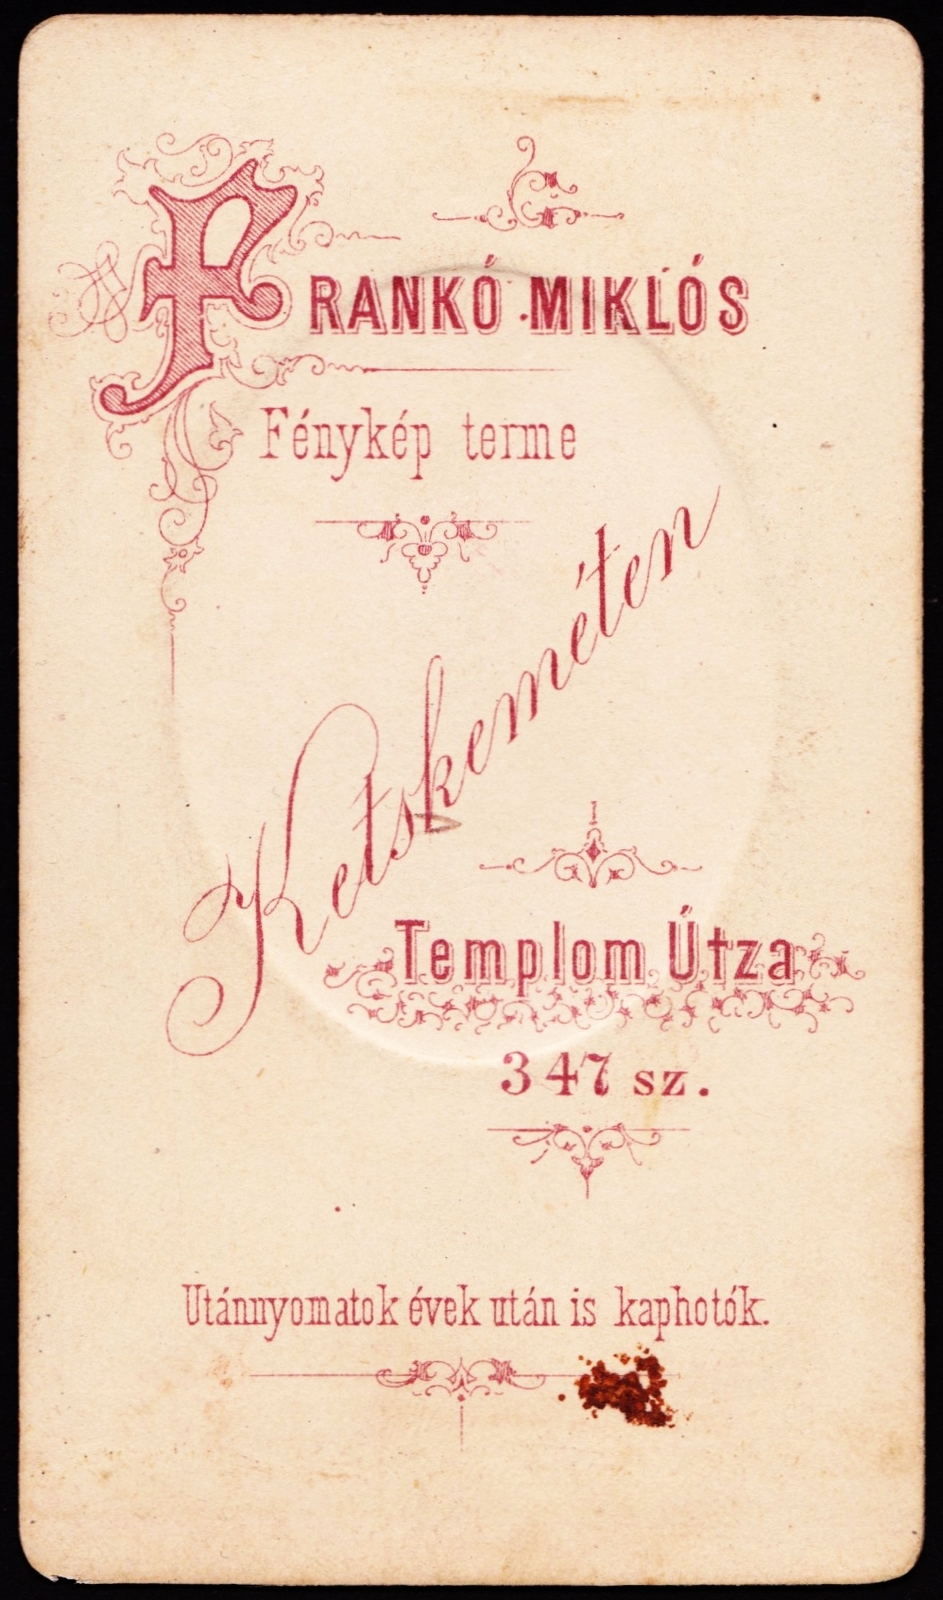 FRANKÓ MIKLÓS
Fénykép terme
Ketskeméten
Templom Útza
347 sz.
Utánnyomatok évek után is kaphotók.